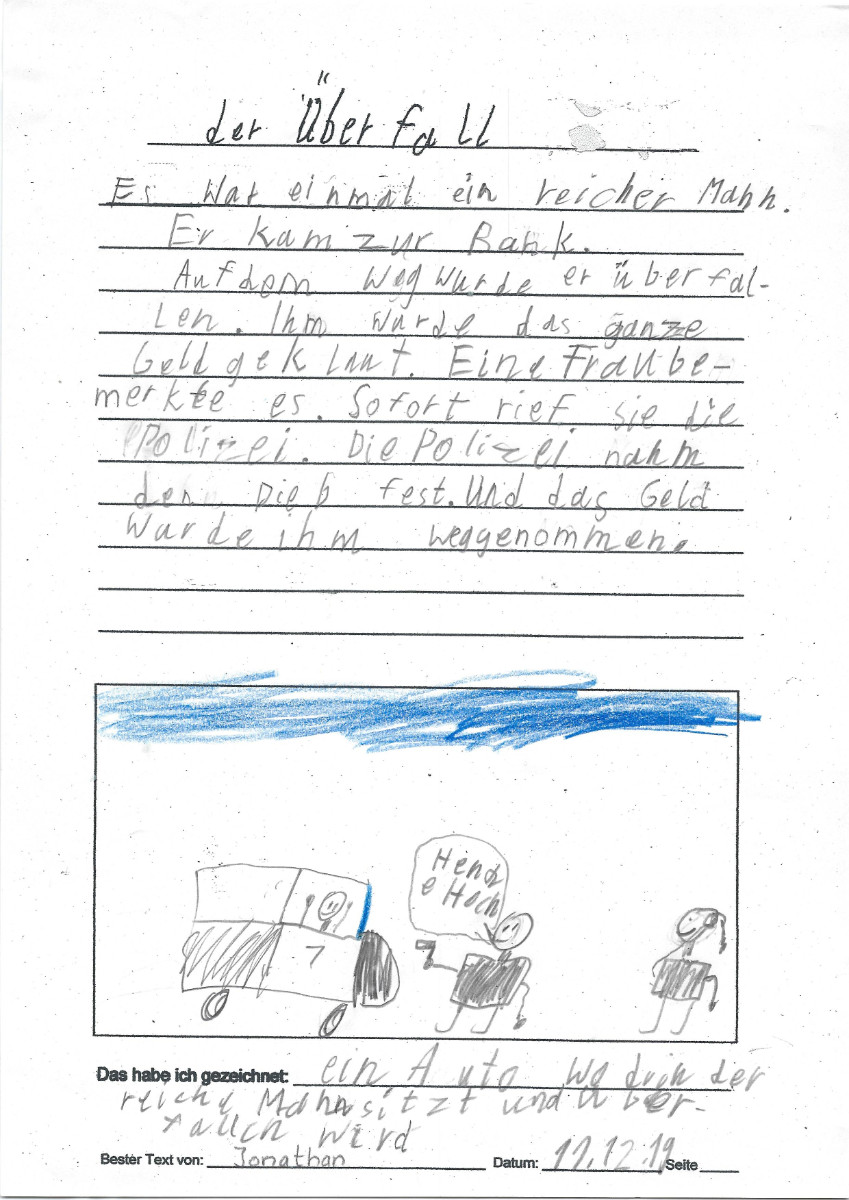 der Überfall
Es war einmal ein reicher Mann.
Er kam zur Bank.
Auf dem Weg wurde er überfal-
len. Ihm wurde das ganze
Geld geklaut. Eine Frau be-
merkte es. Sofort rief sie die
Polizei. Die Polizei nahm
den Dieb fest. Und das Geld
wurde ihm weggenommen.
Hend
e Hoch
7
Das habe ich gezeichnet: ein Auto wo drin der
reiche Mann sitzt und über-
wird
Bester Text von: Jonathan Datum: 11.12.19 Seite